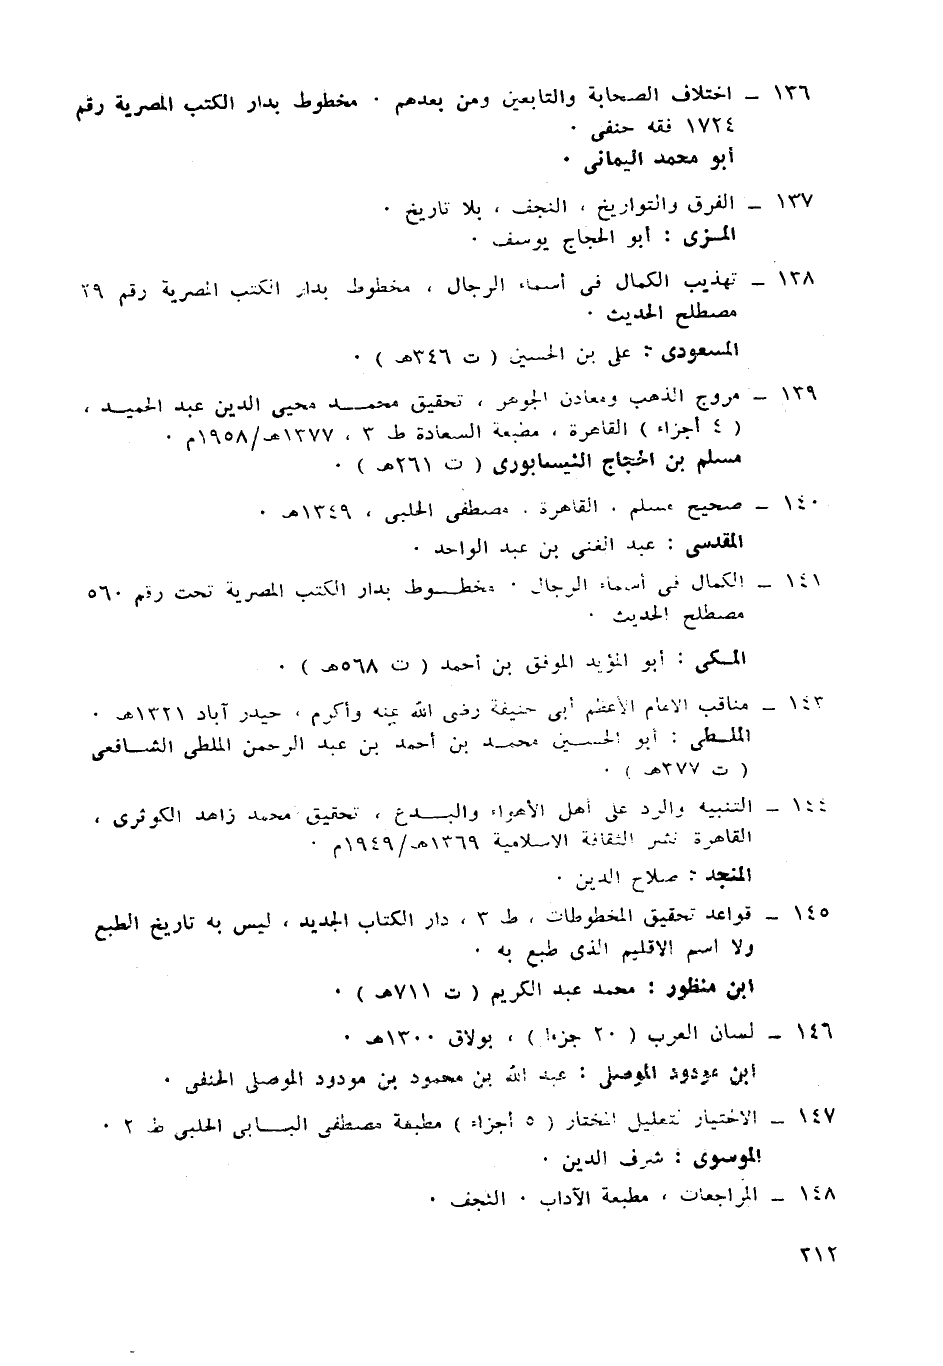 ١٣٦ ـ اختلاف الصحابة والتابعين ومن بعدهم ٠ مخطوط بدار الكتب المصرية رقم
١٧٢٤ فقه حنفى ٠
أبو محمد اليمانى ٠
١٣٧ ـ الفرق والتواريخ ، النجف ، بلا تاريخ ٠
المـزى : أبو الحجاج يوسف ٠
١٣٨ ـ تهذيب الكمال فى أسماء الرجال ، مخطوط بدار الكتب المصرية رقم ٢٩
مصطلح الحديث ٠
المسعودى : على بن الحسين ( ت ٣٤٦هـ ) ٠
١٣٩ ـ مروج الذهب ومعادن الجوهر ، تحقيق محمـــد محيى الدين عبد الحميـد ،
( ٤ أجزاء ) القاهرة ، مطبعة السعادة ط ٣ ، ١٣٧٧هـ/١٩٥٨م ٠
مسلم بن الحجاج النيسابورى ( ت ٢٦١هـ ) ٠
١٤٠ ـ صحيح مسلم ٠ القاهرة ٠ مصطفى الحلبى ، ١٣٤٩هـ ٠
المقدسى : عبد الغنى بن عبد الواحد ٠
١٤١ ـ الكمال فى أسماء الرجال ٠ مخطـــوط بدار الكتب المصرية تحت رقم ٥٦٠
مصطلح الحديث ٠
المـكى : أبو المؤيد الموفق بن أحمد ( ت ٥٦٨هـ ) ٠
١٤٣ ـ مناقب الامام الأعظم أبى حنيفة رضى الله عنه وأكرم ، حيدر آباد ١٣٢١هـ ٠
الملـطى : أبو الحســـين محمـد بن أحمد بن عبد الرحمن الملطى الشـافعى
( ت ٣٧٧هـ ) ٠
١٤٤ ـ التنبيه والرد على أهل الأهواء والبــدع ، تحقيق محمد زاهد الكوثرى ،
القاهرة نشر الثقافة الاسلامية ١٣٦٩هـ/١٩٤٩م ٠
المنجد : صلاح الدين ٠
١٤٥ ـ قواعد تحقيق المخطوطات ، ط ٣ ، دار الكتاب الجديد ، ليس به تاريخ الطبع
ولا اسم الاقليم الذى طبع به ٠
ابن منظور : محمد عبد الكريم ( ت ٧١١هـ ) ٠
١٤٦ ـ لسان العرب ( ٢٠ جزءا ) ، بولاق ١٣٠٠هـ ٠
ابن مودود الموصلى : عبد الله بن محمود بن مودود الموصلى الحنفى ٠
١٤٧ ـ الاختيار لتعليل المختار ( ٥ أجزاء ) مطبعة مصطفى البـــابى الحلبى ط ٢ ٠
الموسوى : شرف الدين ٠
١٤٨ ـ المراجعات ، مطبعة الآداب ٠ النجف ٠
٢١٢